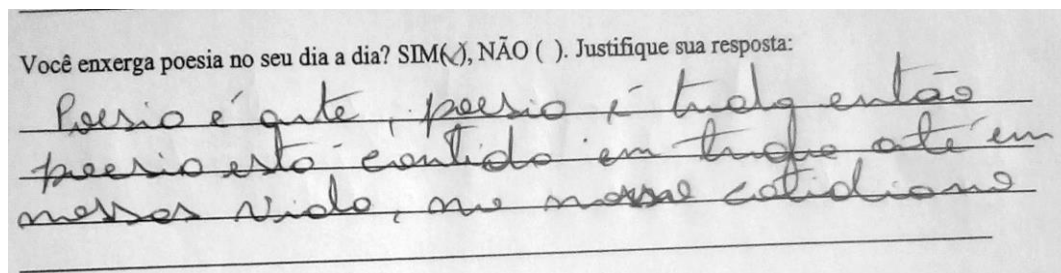 Você enxerga poesia no seu dia a dia? SIM(✓), NÃO ( ). Justifique sua resposta:
Poesia é arte, poesia é tudo então
poesia está contida em tudo até em
nossas vida, no nosso cotidiano